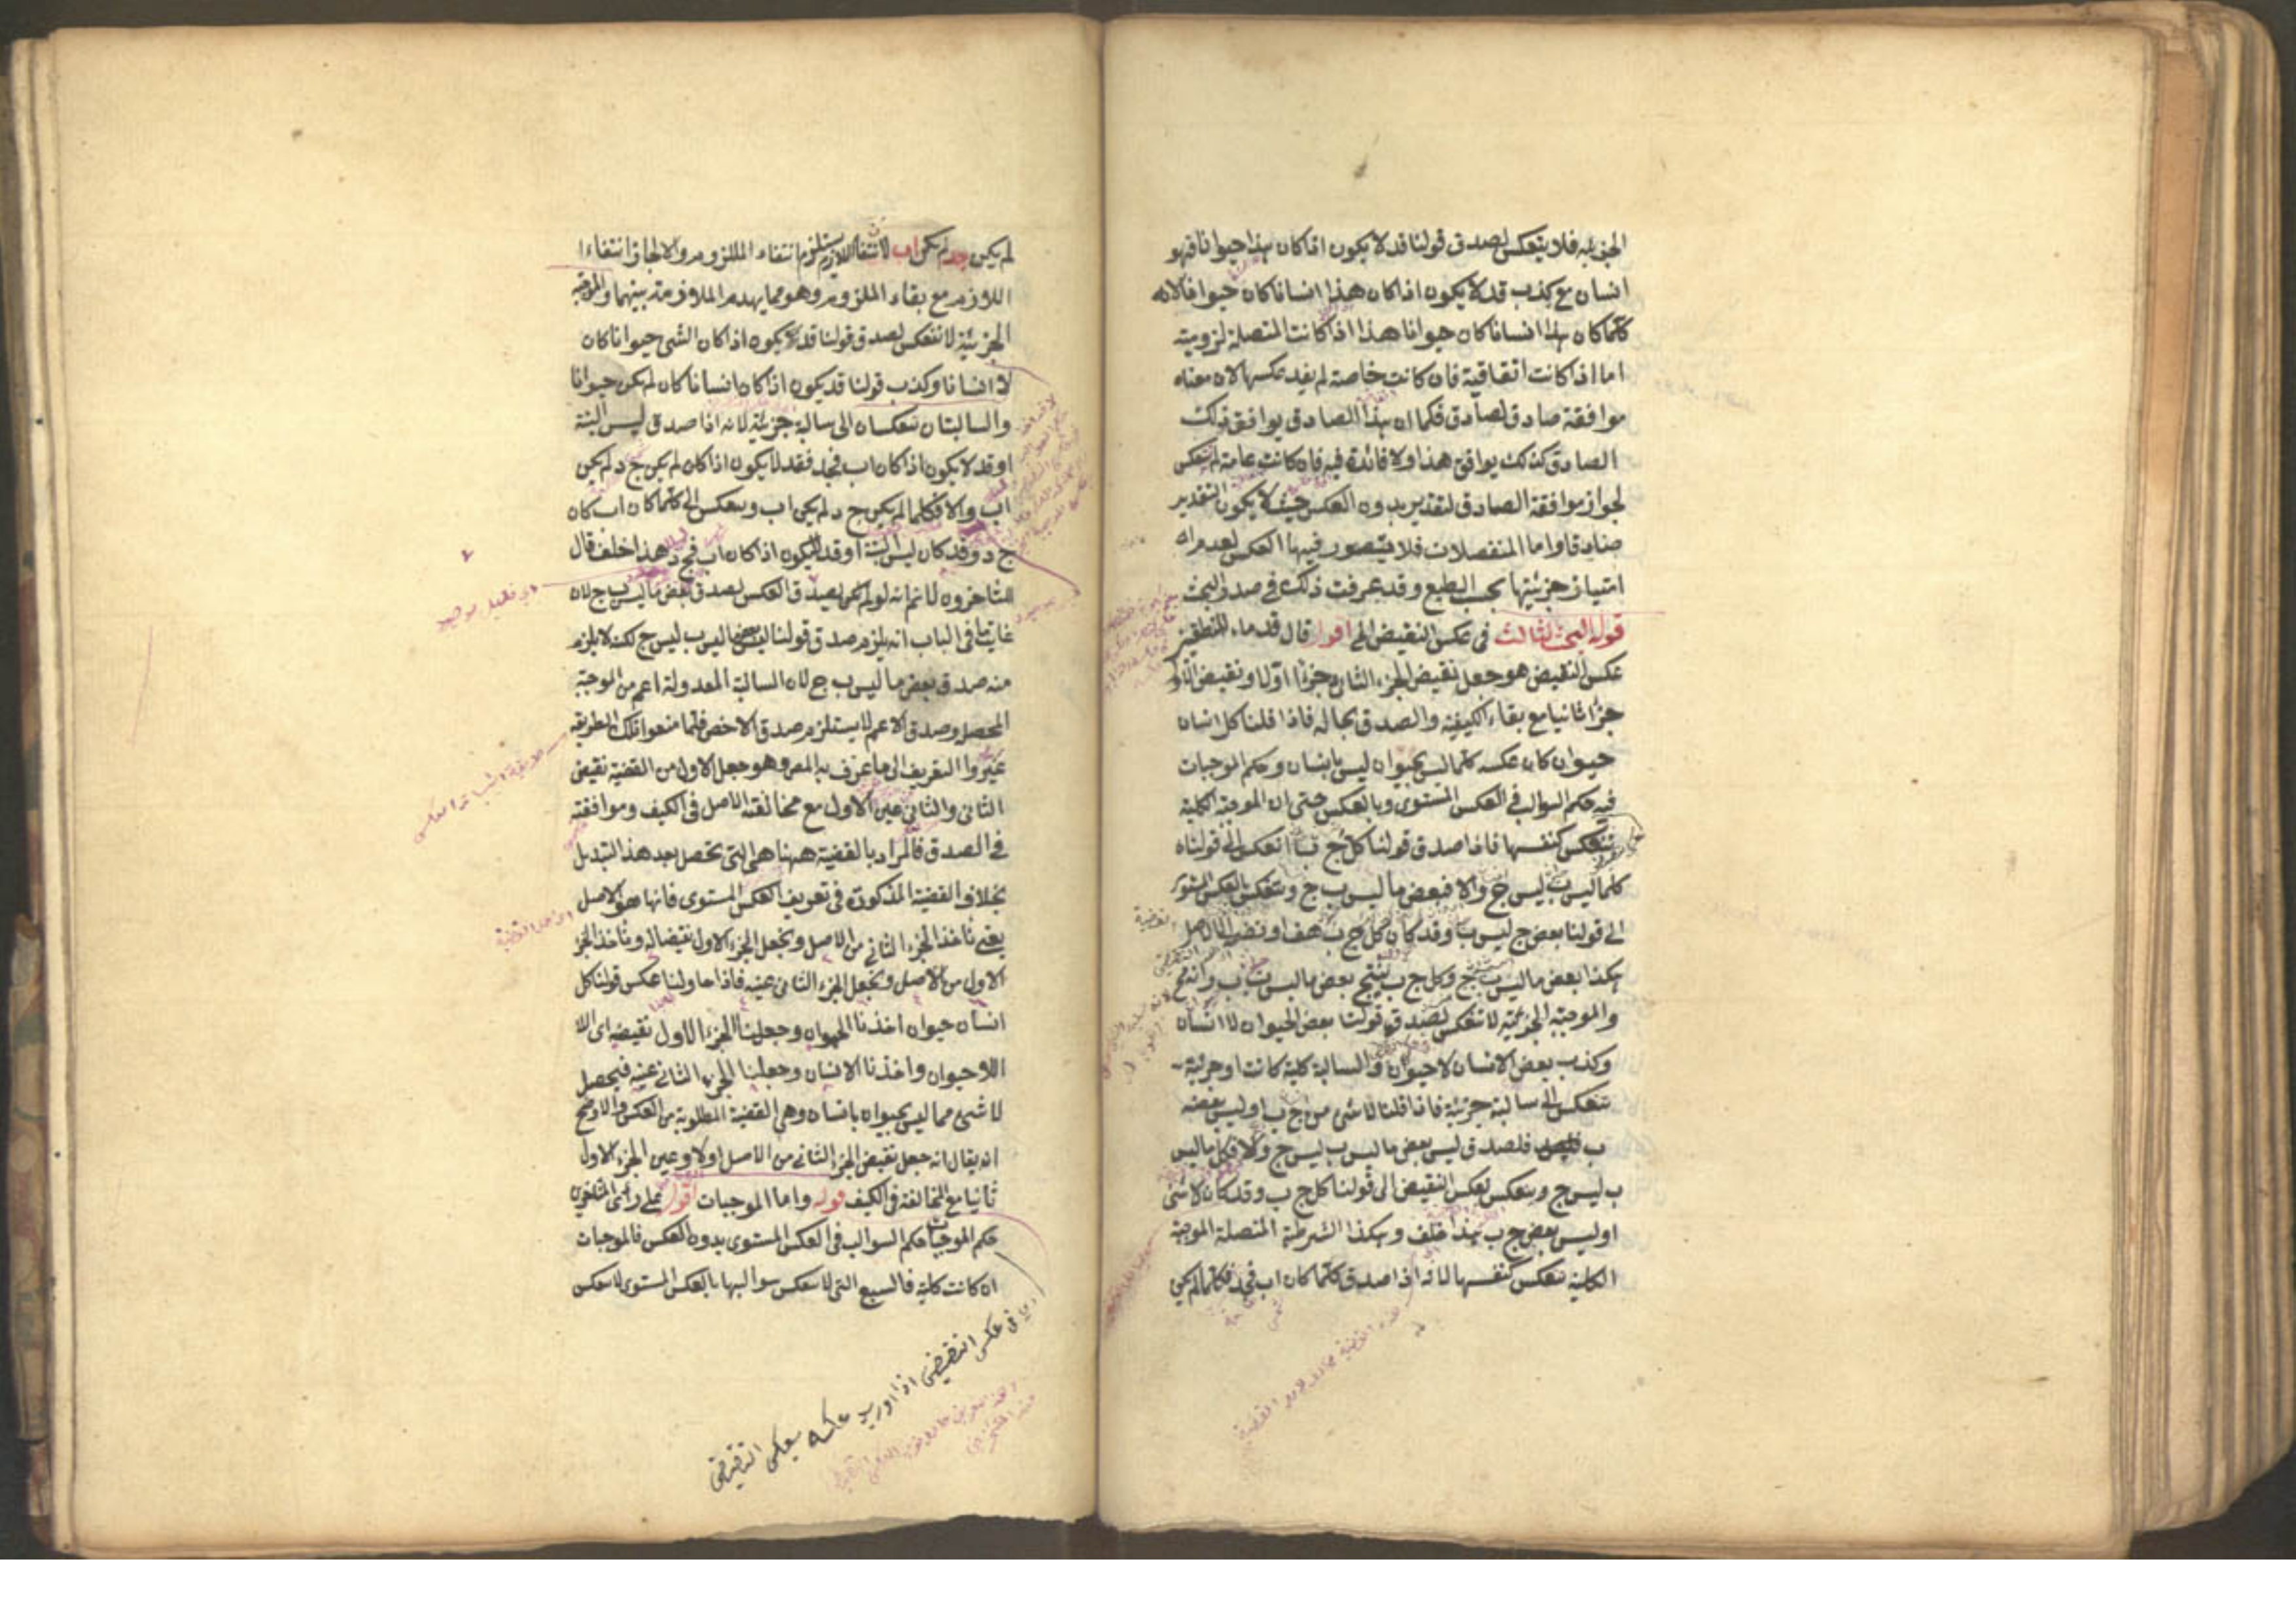 الجزئية فلا ينعكس لصدق قولنا قد لا يكون اذا كان هذا حيوانا فهو
انسان مع كذب قد لا يكون اذا كان هذا انسانا كان حيوانا لانه
كلما كان هذا انسانا كان حيوانا هذا اذا كانت المتصلة لزومية
اما اذا كانت اتفاقية فان كانت خاصة لم يفد عكسها لان معناه
موافقة صادق لصادق فكما ان هذا الصادق يوافق ذلك
الصادق كذلك يوافق هذا ولا فائدة فيه فان كانت عامة لم ينعكس
لجواز موافقة الصادق لتقدير بدون العكس حيث لا يكون التقدير
صادقا واما المنفصلات فلا يتصور فيها العكس لعدم
امتياز جزئيتها بحسب الطبع وقد عرفت ذلك في صدر البحث
قوله البحث الثالث في عكس النقيض الى اقول قال قدماء المنطقيين
عكس النقيض هو جعل نقيض الجزء الثاني جزءا اولا ونقيض الاول
جزءا ثانيا مع بقاء الكيفية والصدق بحاله فاذا قلنا كل انسان
حيوان كان عكسه كلما ليس بحيوان ليس بانسان وحكم الموجبات
فيه حكم السوالب في العكس المستوى وبالعكس حتى ان الموجبة الكلية
تنعكس كنفسها فاذا صدق قولنا كل ج ب انعكس الى قولنا
كلما ليس ب ليس ج والا فبعض ما ليس ب ج وتنعكس بالعكس المستوى
الى قولنا بعض ج ليس ب وقد كان كل ج ب هف او نضم الى الاصل
هكذا بعض ما ليس ب ج وكل ج ب ينتج بعض ما ليس ب ب وانه مح
والموجبة الجزئية لا تنعكس لصدق قولنا بعض الحيوان لا انسان
وكذب بعض الانسان لا حيوان والسالبة كلية كانت او جزئية
تنعكس الى سالبة جزئية فاذا قلنا لا شئ من ج ب او ليس بعضه
ب فلصدق ليس بعض ما ليس ب ليس ج والا فكل ما ليس
ب ليس ج وينعكس بعكس النقيض الى قولنا كل ج ب وقد كان لا شئ
او ليس بعض ج ب هذا خلف وهكذا الشرطية المتصلة الموجبة
الكلية تنعكس كنفسها لانه اذا صدق كلما كان اب فجد فكلما لم يكن
لم يكن جد لم يكن اب لانتفاء اللازم يستلزم انتفاء الملزوم والا لجاز انتفاء
اللازم مع بقاء الملزوم وهو مما يهدم الملازمة بينهما والموجبة
الجزئية لا تنعكس لصدق قولنا قد يكون اذا كان الشئ حيوانا كان
لا انسانا وكذب قولنا قد يكون اذا كان انسانا كان لم يكن حيوانا
والسالبتان تنعكسان الى سالبة جزئية لانه اذا صدق ليس البتة
او قد لا يكون اذا كان اب فجد فقد لا يكون اذا كان لم يكن ج د لم يكن
اب والا فكلما لم يكن ج د لم يكن اب وينعكس الى كلما كان اب كان
ج د وقد كان ليس البتة او قد لا يكون اذا كان اب فج د هذا خلف قال
المتاخرون لا نم انه لو لم يصدق العكس لصدق بعض ما ليس ب ج لان
غاية ما في الباب انه يلزم صدق قولنا ليس بعض ما ليس ب ليس ج لكنه لا يلزم
منه صدق بعض ما ليس ب ج لان السالبة المعدولة اعم من الموجبة
المحصلة وصدق الاعم لا يستلزم صدق الاخص فلما منعوا تلك الطريقة
غيروا التعريف الى ما عرف به المص وهو جعل الاول من القضية نقيض
الثاني والثاني عين الاول مع مخالفة الاصل في الكيف وموافقته
في الصدق فالمراد بالقضية ههنا هي التي تحصل بعد هذا التبديل
بخلاف القضية المذكورة في تعريف العكس المستوى فانها هو الاصل
يعنى ناخذ الجزء الثاني من الاصل ونجعل الجزء الاول نقيضا له وناخذ الجزء
الاول من الاصل ونجعل الجزء الثاني عينه فاذا حاولنا عكس قولنا كل
انسان حيوان اخذنا الحيوان وجعلنا الجزء الاول نقيضه اى اللا
اللاحيوان واخذنا الانسان وجعلنا الجزء الثاني عينه فيحصل
لا شئ مما ليس بحيوان بانسان وهى القضية المطلوبة من العكس والاوضح
ان يقال انه جعل نقيض الجزء الثاني من الاصل اولا وعين الجزء الاول
ثانيا مع المخالفة في الكيف قوله واما الموجبات اقول على راى المتاخرين
حكم الموجبات حكم السوالب في العكس المستوى بدون العكس فالموجبات
ان كانت كلية فالسبع التي لا تنعكس سوالبها بالعكس المستوى لا تنعكس
في عكس النقيض اذا اريد عكسه بعكس النقيض